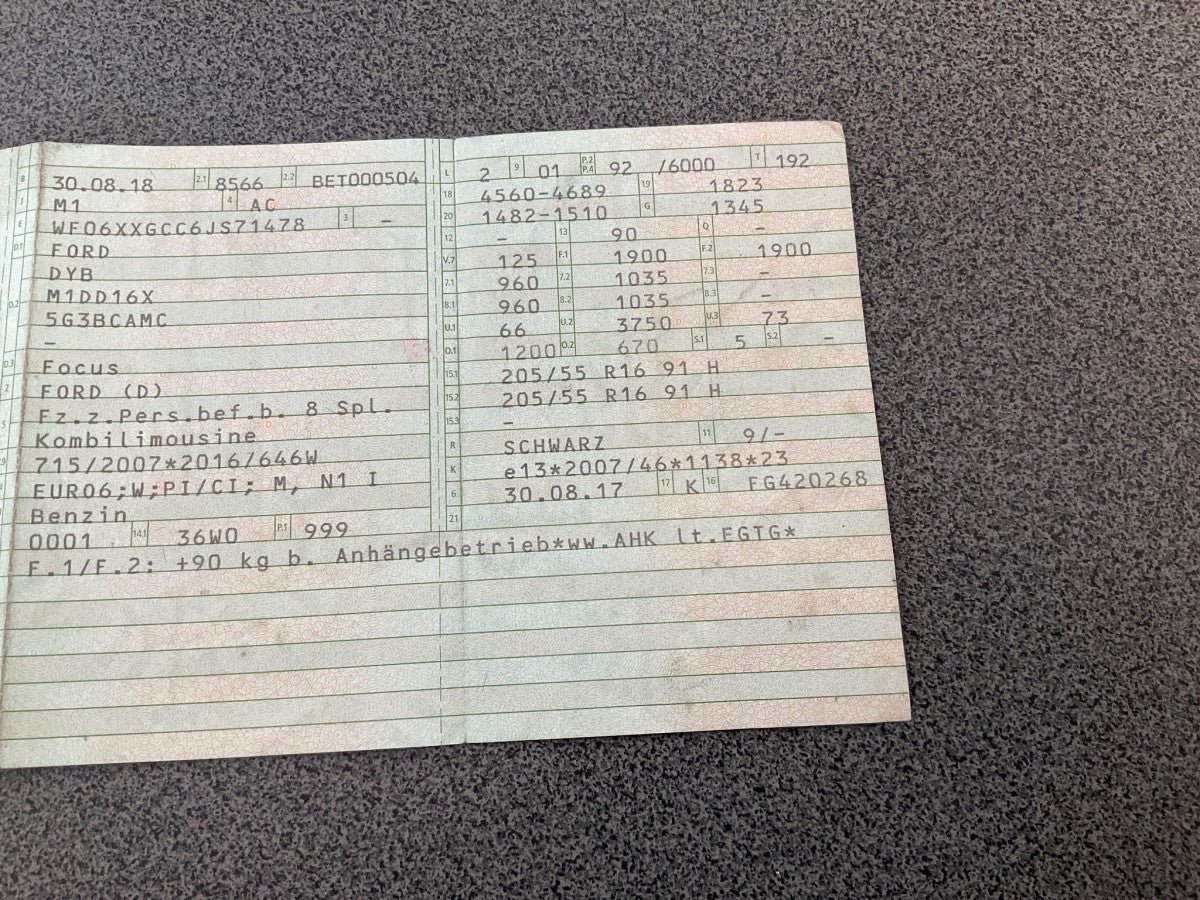 B 30.08.18 2.1 8566 2.2 BET000504
J M1 4 AC
E WF06XXGCC6JS71478 3 –
D.1 FORD
DYB
D.2 M1DD16X
5G3BCAMC
–
D.3 Focus
2 FORD (D)
5 Fz.z.Pers.bef.b. 8 Spl.
Kombilimousine
715/2007*2016/646W
EURO6;W;PI/CI; M, N1 I
Benzin
0001 14.1 36W0 P.1 999
L 2 9 01 P.2 P.4 92 /6000 T 192
18 4560-4689 19 1823
20 1482-1510 G 1345
12 – 13 90 Q –
V.7 125 F.1 1900 F.2 1900
7.1 960 7.2 1035 7.3 –
8.1 960 8.2 1035 8.3 –
U.1 66 U.2 3750 U.3 73
O.1 1200 O.2 670 S.1 5 S.2 –
15.1 205/55 R16 91 H
15.2 205/55 R16 91 H
15.3 –
R SCHWARZ 11 9/–
K e13*2007/46*1138*23
6 30.08.17 17 K 16 FG420268
21
F.1/F.2: +90 kg b. Anhängebetrieb*ww.AHK lt.EGTG*